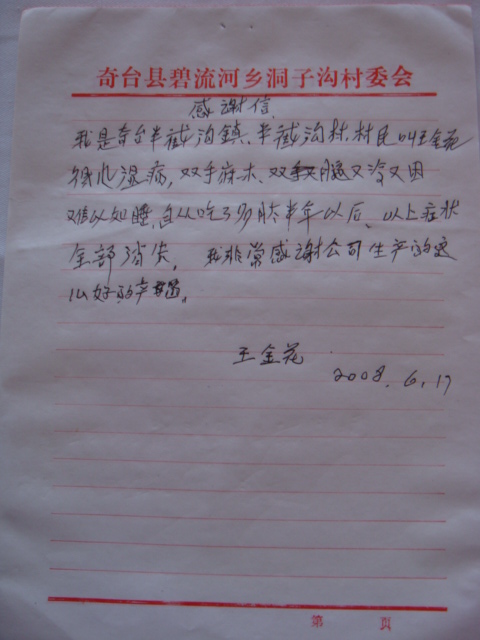 奇台县碧流河乡洞子沟村委会
感谢信
我是奇台半截沟鎮、半截沟村村民叫王金花
风心湿病，双手麻木、双腿又冷又困
难以如睡，自从吃了多肽半年以后、以上症状
全部消失，我非常感谢公司生产的这
么好的产品。
王金花
2008.6.17
第 頁